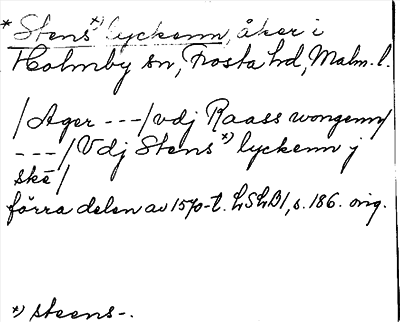 * Stens *) lyckenn, åker i
Holmby sn, Frosta hd, Malm. l.
/Ager ---/ vdj Raass wongenn/
---/ Vdj Stens *) lyckenn j
ske/
förra delen av 1570-t. LSLB1, s. 186. orig.
*) steens-.